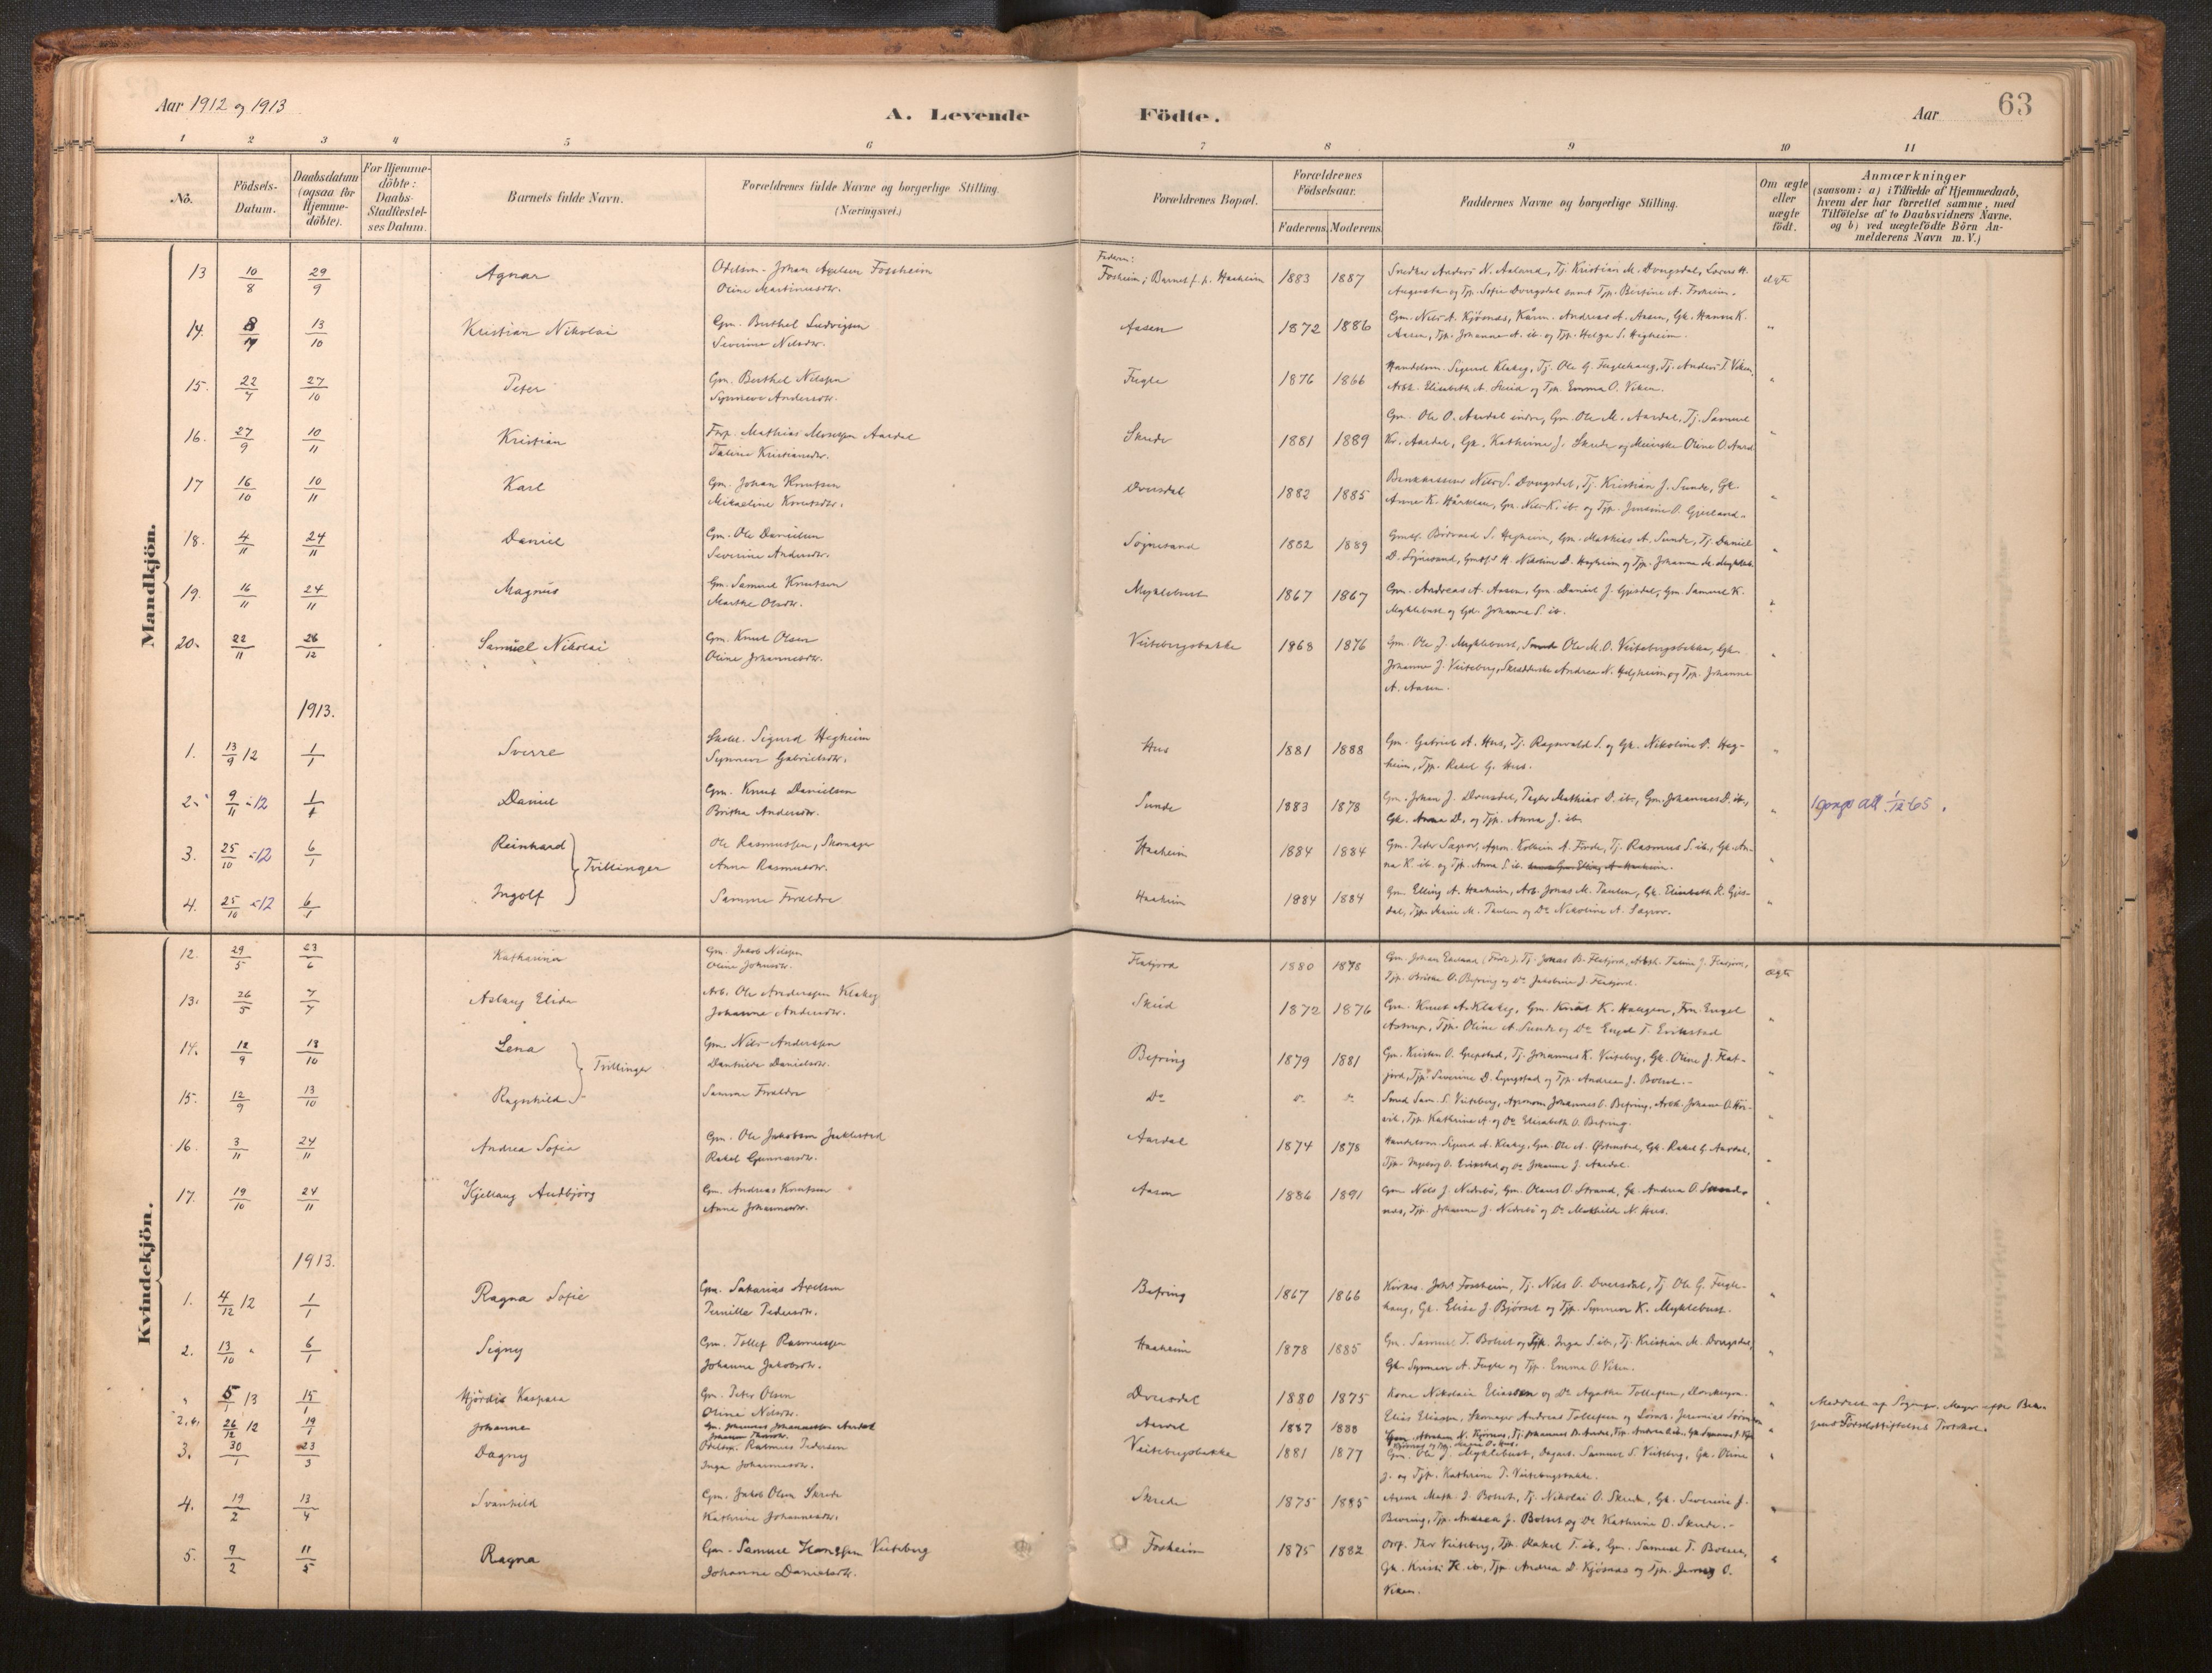 Aar 1912 og 1913
A. Levende Födte.
Aar
63
1 2 3 4 5 6 7 8 9 10 11
No.
Födsels-Datum.
Daabsdatum (ogsaa for Hjemme-döbte).
For Hjemme-döbte: Daabs-Stadfæstel-ses Datum.
Barnets fulde Navn.
Forældrenes fulde Navne og borgerlige Stilling. (Næringsvei.)
Forældrenes Bopæl.
Forældrenes Födselsaar.
Faderens. Moderens.
Faddernes Navne og borgerlige Stilling.
Om ægte eller uægte födt.
Anmærkninger
(saasom: a) i Tilfælde af Hjemmedaab,
hvem der har forrettet samme, med
Tilföielse af to Daabsvidners Navne,
og b) ved uægtefödte Börn An-
melderens Navn m. V.)
Mandkjön.
13 10/8 29/9 Agnar Odelsm. Johan Axelsen Fossheim
Oline Martinusdtr.
Faderen: Fosheim; Barnet f. p. Haaheim 1883 1887 Snedker Anders N. Aaland, Tj. Kristian M. Dvergsdal,
Augusta og Tjp. Sofie Dvergsdal samt Tjp. Bertine A. Fosheim. ægte
14. 8/9 13/10 Kristian Nikolai Gm. Berthel Ludvigsen
Severine Nilsdtr.
Aasen 1872 1886 Gm. Nils A. Kjösnæs, Kårm. Andreas A. Aasen, Gk. Hanna K.
Aasen, Tjp. Johanna A. ib. og Tjp. Helga S. Hegheim. "
15. 22/7 27/10 Peter Gm. Berthel Nilssen
Synneve Andersdtr.
Fugle 1876 1866 Handelsm. Sigurd Klakeg, Tj. Ole G. Fuglehaug, Tj. Anders T. Viken,
Arbk. Elisabeth A. Skrid og Tjp. Emma O. Viken. "
16. 27/9 10/11 Kristian Forp. Mathias Mosessen Aardal
Taline Kristiansdtr.
Skrede 1881 1889 Gm. Ole O. Aardal indre, Gm. Ole M. Aardal, Tj. Samuel
Kr. Aardal, Gk. Kathrine J. Skrede og Meierske Oline O. Aard. "
17 16/10 10/11 Karl Gm. Johan Knutsen
Mikaeline Knutsdtr.
Dvergsdal 1882 1885 Bankkasserer Nils S. Dvergsdal, Tj. Kristian J. Sunde, Gk.
Anne K. Håheim, Gm. Nils K. ib. og Tjp. Jensine O. Gjerland. "
18. 4/11 24/11 Daniel Gm. Ole Danielsen
Severine Andersdtr.
Sognesand 1882 1889 Bödvard S. Hegheim, Gm. Mathias A. Sunde, Tj. Daniel
D. Sognesand, Nikoline D. Hegheim og Tjp. Johanna M. Myklebust. "
19. 16/11 24/11 Magnus Gm. Samuel Knutsen
Marthe Olsdtr.
Myklebust 1867 1867 Gm. Andreas A. Aasen, Gm. Daniel J. Gjesdal, Gm. Samuel K.
Myklebust og Gk. Johanne S. ib. "
20. 22/11 26/12 Samuel Nikolai Gm. Knut Olsen
Oline Johannesdtr.
Veitebergsbakke 1868 1876 Gm. Ole J. Myklebust, Smed Ole M. O. Veitebergsbakke, Gk.
Johanne J. Veiteberg, Skrædderske Andrea N. Helgheim og Tjp. Johanne
A. Aasen. "
1913.
1. 13/9 12 1/1 Sverre Skolel. Sigurd Hegheim
Synneve Gabrielsdtr.
Hus 1881 1888 Gm. Gabriel A. Hus, Tj. Ragnvald S. og Gk. Nikoline D. Heg-
heim, Tjp. Rakel G. Hus. "
2. 9/11 -12 1/1 Daniel Gm. Knut Danielsen
Britha Andersdtr.
Sunde 1883 1878 Gm. Johan J. Dvergsdal, Mathias D. ib., Gm. Johannes D. ib.,
Gk. Anna D. og Tjp. Anna J. ib. " att. 1/12 65.
3. 25/10 -12 6/1 Reinhard Tvillinger Ole Rasmussen, Skomager
Anna Rasmusdtr.
Haaheim 1884 1884 Gm. Peder Sagrov, Agron. Kolbein A. Förde, Tj. Rasmus S. ib., Gk. An-
na K. ib. og Tjp. Anna S. ib. "
4. 25/10 -12 6/1 Ingolf Samme Forældre
Haaheim 1884 1884 Gm. Elling A. Haaheim, Arb. Jonas M. Paulen, Gk. Elisabeth K. Gjes-
dal, Tjp. Marie M. Paulen og Do Nikoline A. Sagrov. "
Kvindekjön.
12. 29/5 23/6 Katharina Gm. Jakob Nilssen
Oline Johnsdtr.
Flatjord 1880 1878 Gm. Johan (Förde), Tj. Jonas B. Flatjord, Arbk. Taline J. Flatjord,
Tjp. Brithe O. Befring og Do Jakobine J. Flatjord. ægte
13. 26/5 7/7 Aslaug Elida Arb. Ole Anderssen Klakeg
Johanne Andersdtr.
Skrid 1872 1876 Gm. Knut A. Klakeg, Gm. Knut K. Haugen, Fru Engel
Astrup, Tjp. Oline A. Sunde og Do Engel T. Erikstad "
14. 12/9 13/10 Lena Tvillinger Gm. Nils Anderssen
Danhilde Danielsdtr.
Befring 1879 1881 Gm. Kristen O. Grepstad, Tj. Johannes K. Veiteberg, Gk. Oline J. Flat-
jord, Tjp. Severine D. Lyngstad og Tjp. Andrea J. Bolset. "
15. 12/9 13/10 Ragnhild Samme Forældre
Do Do Do Smed Sam. S. Veiteberg, Agronom Johannes O. Befring, Arbk. Johanne O.
Tjp. Kathrine A. og Do Elisabeth O. Befring. "
16. 3/11 24/11 Andrea Sofie Gm. Ole Jakobsen Juklestad
Rakel Gunnarsdtr.
Aardal 1874 1878 Handelsm. Sigurd A. Klakeg, Gm. Ole A. Gk. Rakel G. Aardal,
Tjp. Ingeborg O. Erikstad og Do Johanne J. Aardal. "
17. 19/10 24/11 Kjellaug Audbjörg Gm. Andreas Knutsen
Anna Johannesdtr.
Aasen 1886 1891 Gm. Nils J. Nedrebö, Gm. Olaus O. Strand, Gk. Andrea O.
Tjp. Johanne J. Nedrebö og Do Mathilde N. Hus. "
1913.
1. 4/12 12 1/1 Ragna Sofie Gm. Sakarias Axelsen
Pernille Pedersdtr.
Befring 1867 1866 Johs Fossheim, Tj. Nils O. Dvergsdal, Tj. Ole G. Fugle-
haug, Gk. Elise J. Bjørset og Tjp. Synneve K. Myklebust. "
2. 13/10 " 6/1 Signy Gm. Tollef Rasmussen
Johanne Jakobsdtr.
Haaheim 1878 1885 Gm. Samuel T. Bolset og Tjp. Inga S. ib., Tj. Kristian M. Dvergsdal,
Gk. Synneve A. Fugle og Tjp. Emma O. Viken. "
" 5/1 13 15/1 Hjördis Kaspara Gm. Peter Olsen
Oline Nilsdtr.
Dvergsdal 1880 1875 Kone Nikolaia Eliassen og Do Agathe Tollefsen,
Elias Eliassen, Skomager Andreas Tollefsen og Jeremias Sörensen "
Meddelt af Sognepr. Meyer efter
Fødselsstiftelses Protokol.
2,b. 26/12 12 19/1 Johanne Johannes Johannessen Aardal
Aardal 1887 1888 Gm. Abraham N. Kjösnes, Tj. Johannes D. Aardal, "
3. 30/1 23/3 Dagny Odelsm. Rasmus Pedersen
Inga Johannesdtr.
Veitebergsbakke 1881 1877 Gm. Ole J. Myklebust, Samuel S. Veiteberg, Gk. Oline
J. og Tjp. Kathrine T. Veitebergsbakke. "
4. 19/2 13/4 Svanhild Gm. Jakob Olsen Skrede
Kathrine Johannesdtr.
Skrede 1875 1885 Agent Math. J. Bolset, Tj. Nikolai O. Skrede, Gk. Severine J.
Tjp. Andrea J. Bolset og Do Kathrine O. Skrede. "
5. 9/2 11/5 Ragna Gm. Samuel Hanssen Veiteberg
Johanne Danielsdtr.
Fosheim 1875 1882 Thr Veiteberg, Tjp. Rakel T. ib., Gm. Samuel T. Bolset,
Gk. Kristi K. ib., Tjp. Andrea D. Kjösnes og Tjp. Jenny O.
Viken. "